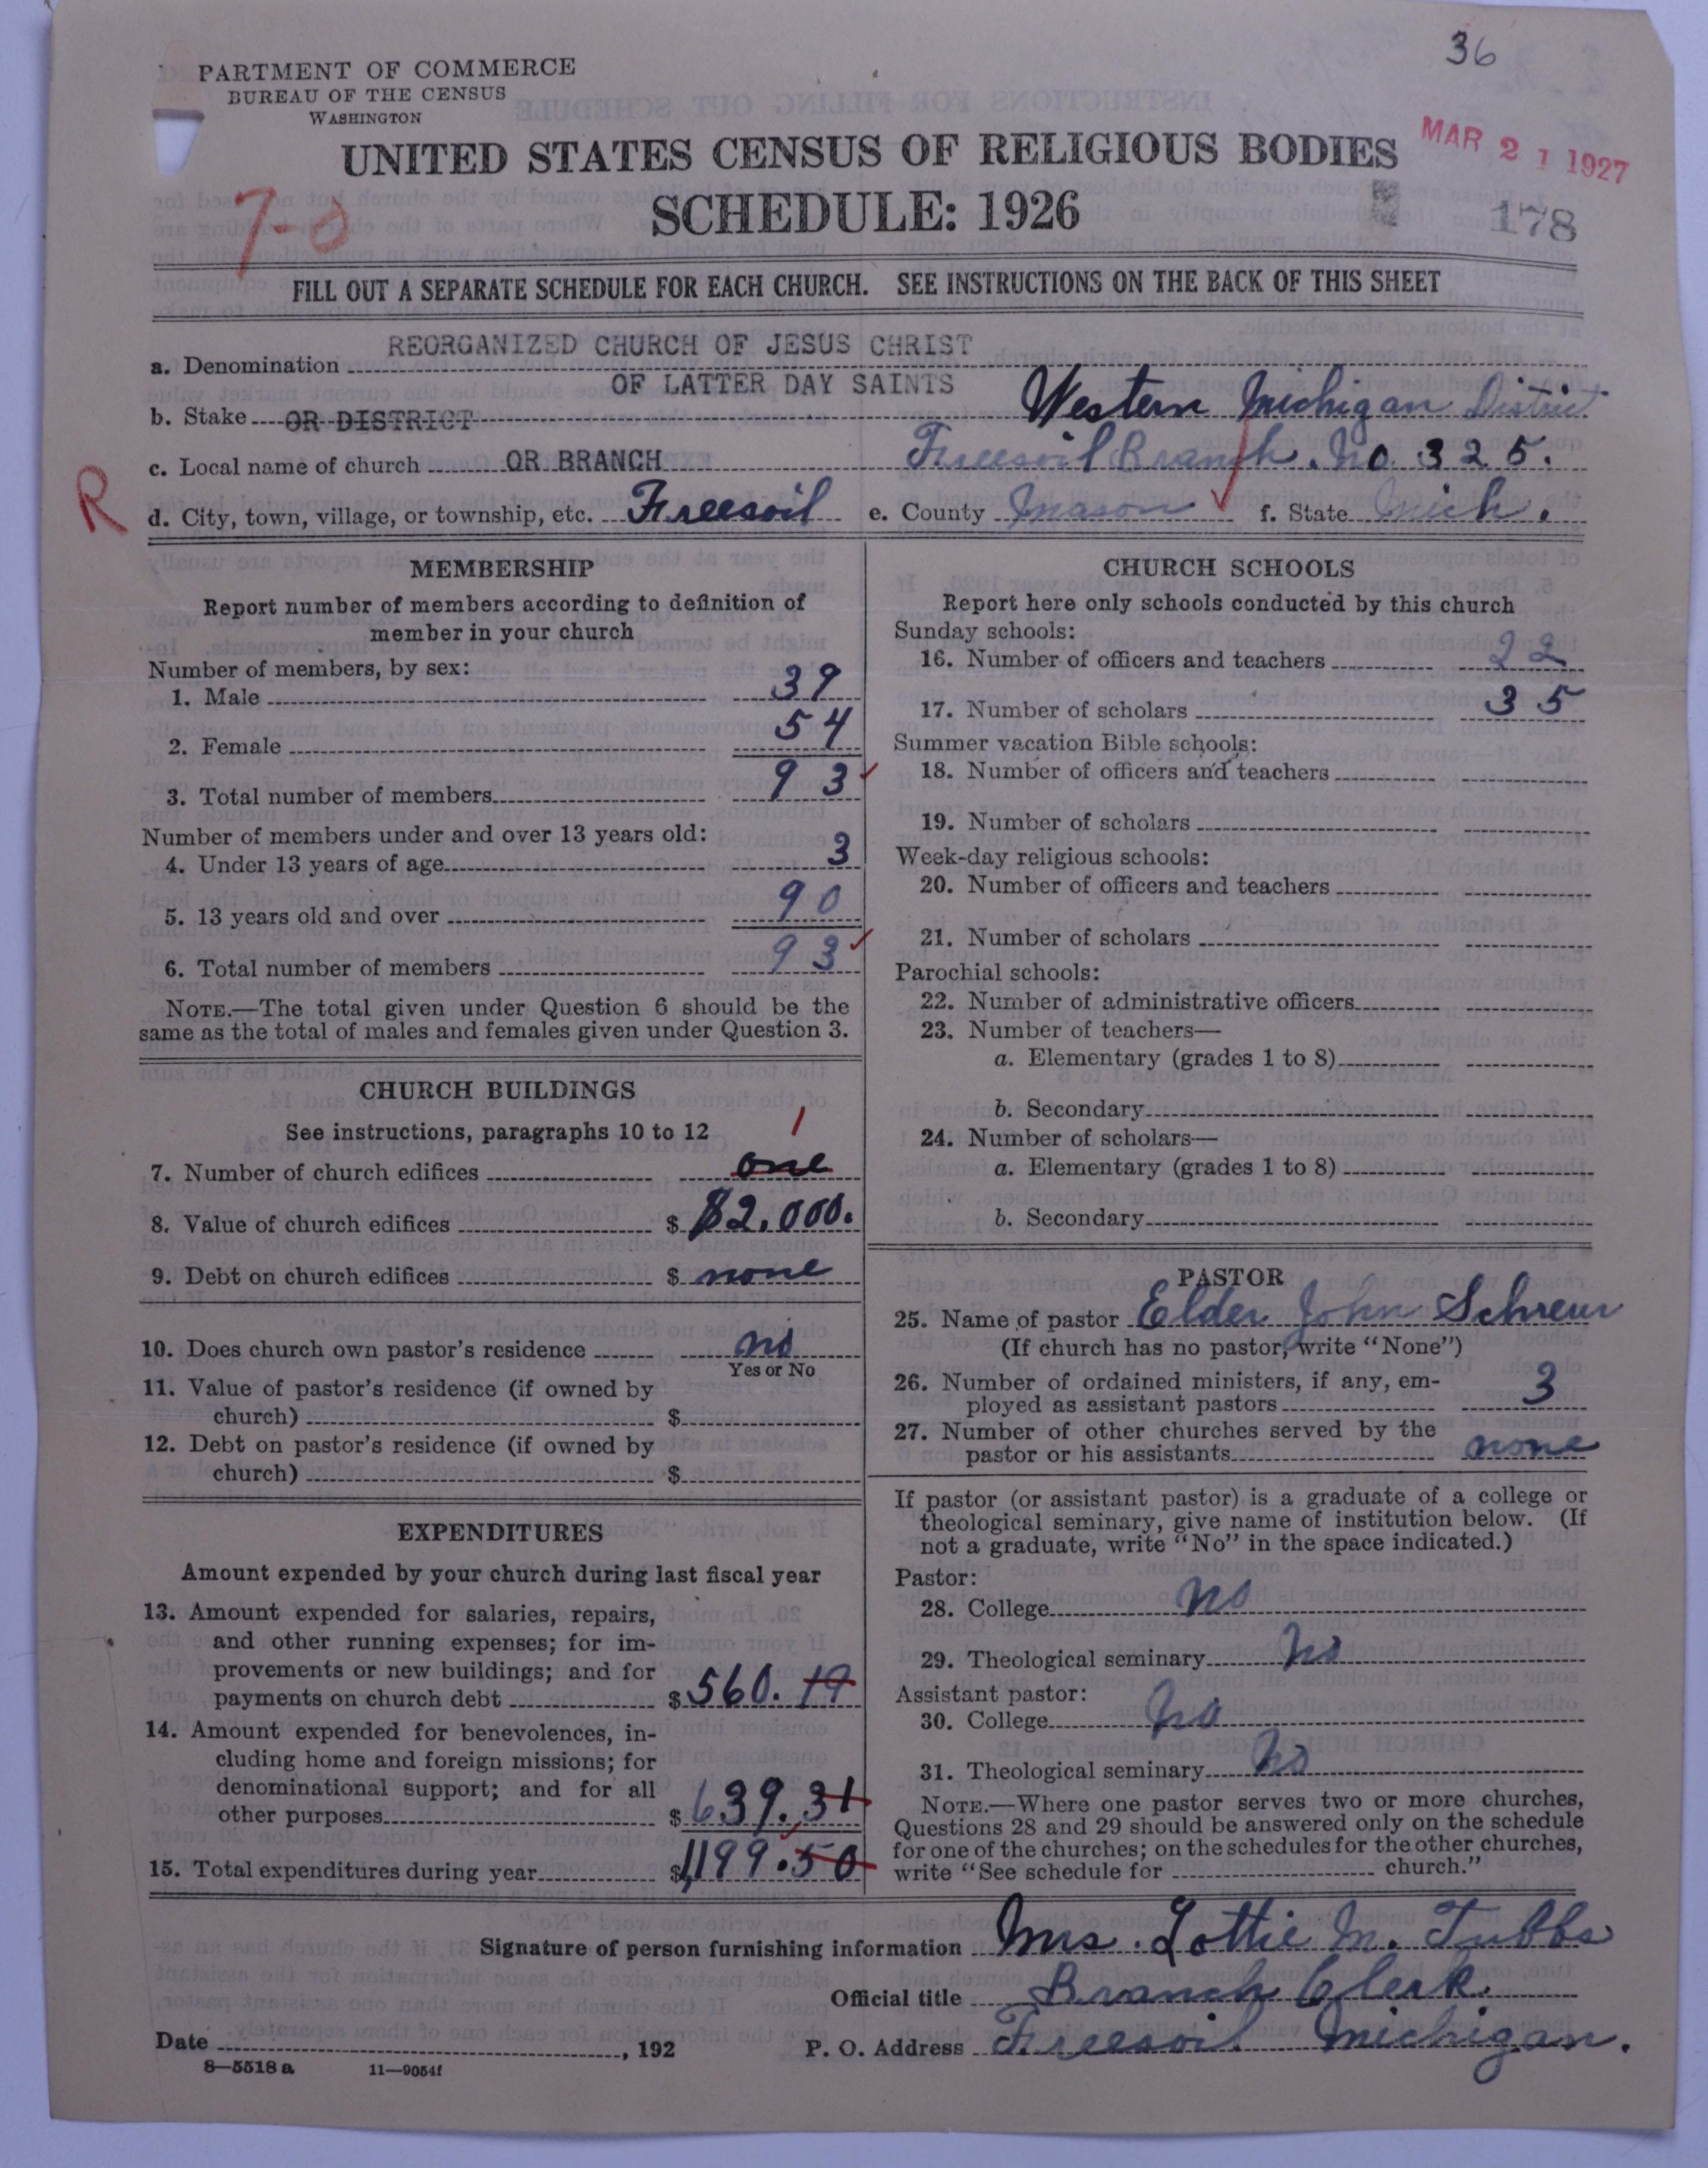 36
PARTMENT OF COMMERCE
BUREAU OF THE CENSUS
WASHINGTON
UNITED STATES CENSUS OF RELIGIOUS BODIES
MAR 21 1927
SCHEDULE: 1926
178
7-0
FILL OUT A SEPARATE SCHEDULE FOR EACH CHURCH. SEE INSTRUCTIONS ON THE BACK OF THIS SHEET
a. Denomination REORGANIZED CHURCH OF JESUS CHRIST
OF LATTER DAY SAINTS
b. Stake OR DISTRICT Western Michigan District
c. Local name of church OR BRANCH Freesoil Branch. No 325.
R
d. City, town, village, or township, etc. Freesoil e. County Mason f. State Mich.
MEMBERSHIP
Report number of members according to definition of
member in your church
Number of members, by sex:
1. Male 39
2. Female 54
3. Total number of members 93
Number of members under and over 13 years old:
4. Under 13 years of age 3
5. 13 years old and over 90
6. Total number of members 93
NOTE.—The total given under Question 6 should be the
same as the total of males and females given under Question 3.
CHURCH BUILDINGS
See instructions, paragraphs 10 to 12
1
7. Number of church edifices one
8. Value of church edifices $ $2,000.
9. Debt on church edifices $ none
10. Does church own pastor's residence no
Yes or No
11. Value of pastor's residence (if owned by
church) $
12. Debt on pastor's residence (if owned by
church) $
EXPENDITURES
Amount expended by your church during last fiscal year
13. Amount expended for salaries, repairs,
and other running expenses; for im-
provements or new buildings; and for
payments on church debt $ 560.19
14. Amount expended for benevolences, in-
cluding home and foreign missions; for
denominational support; and for all
other purposes $ 639.31
15. Total expenditures during year $ 1,199.50
CHURCH SCHOOLS
Report here only schools conducted by this church
Sunday schools:
16. Number of officers and teachers 22
17. Number of scholars 35
Summer vacation Bible schools:
18. Number of officers and teachers
19. Number of scholars
Week-day religious schools:
20. Number of officers and teachers
21. Number of scholars
Parochial schools:
22. Number of administrative officers
23. Number of teachers—
a. Elementary (grades 1 to 8)
b. Secondary
24. Number of scholars—
a. Elementary (grades 1 to 8)
b. Secondary
PASTOR
25. Name of pastor Elder John Schreur
(If church has no pastor, write "None")
26. Number of ordained ministers, if any, em-
ployed as assistant pastors 3
27. Number of other churches served by the
pastor or his assistants none
If pastor (or assistant pastor) is a graduate of a college or
theological seminary, give name of institution below. (If
not a graduate, write "No" in the space indicated.)
Pastor:
28. College no
29. Theological seminary No
Assistant pastor:
30. College No
31. Theological seminary No
NOTE.—Where one pastor serves two or more churches,
Questions 28 and 29 should be answered only on the schedule
for one of the churches; on the schedules for the other churches,
write "See schedule for church."
Signature of person furnishing information Mrs. Lottie M. Tubbs
Official title Branch Clerk.
Date , 192 P. O. Address Freesoil Michigan.
8—5518a 11—9054f